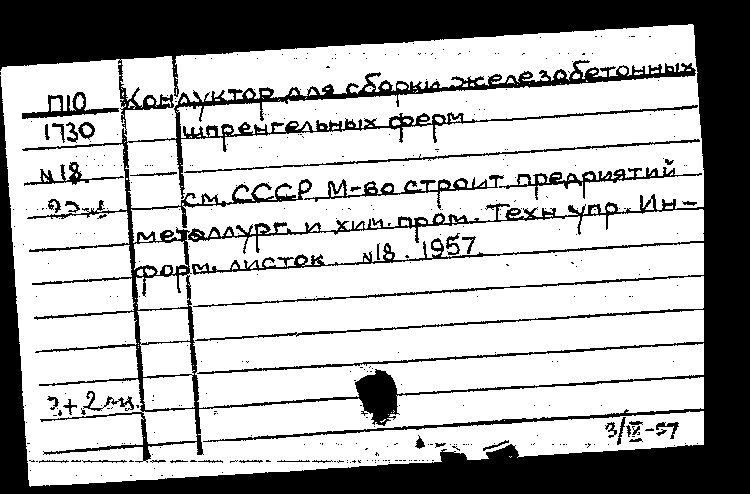 П10 Кондуктор для сборки железобетонных
1730 шпренгельных ферм.
N18. см. СССР. М-во строит. предприятий
металлург. и хим. пром. Техн. упр. Ин-
форм. листок. N18. 1957.
2 экз.
3/IX-57